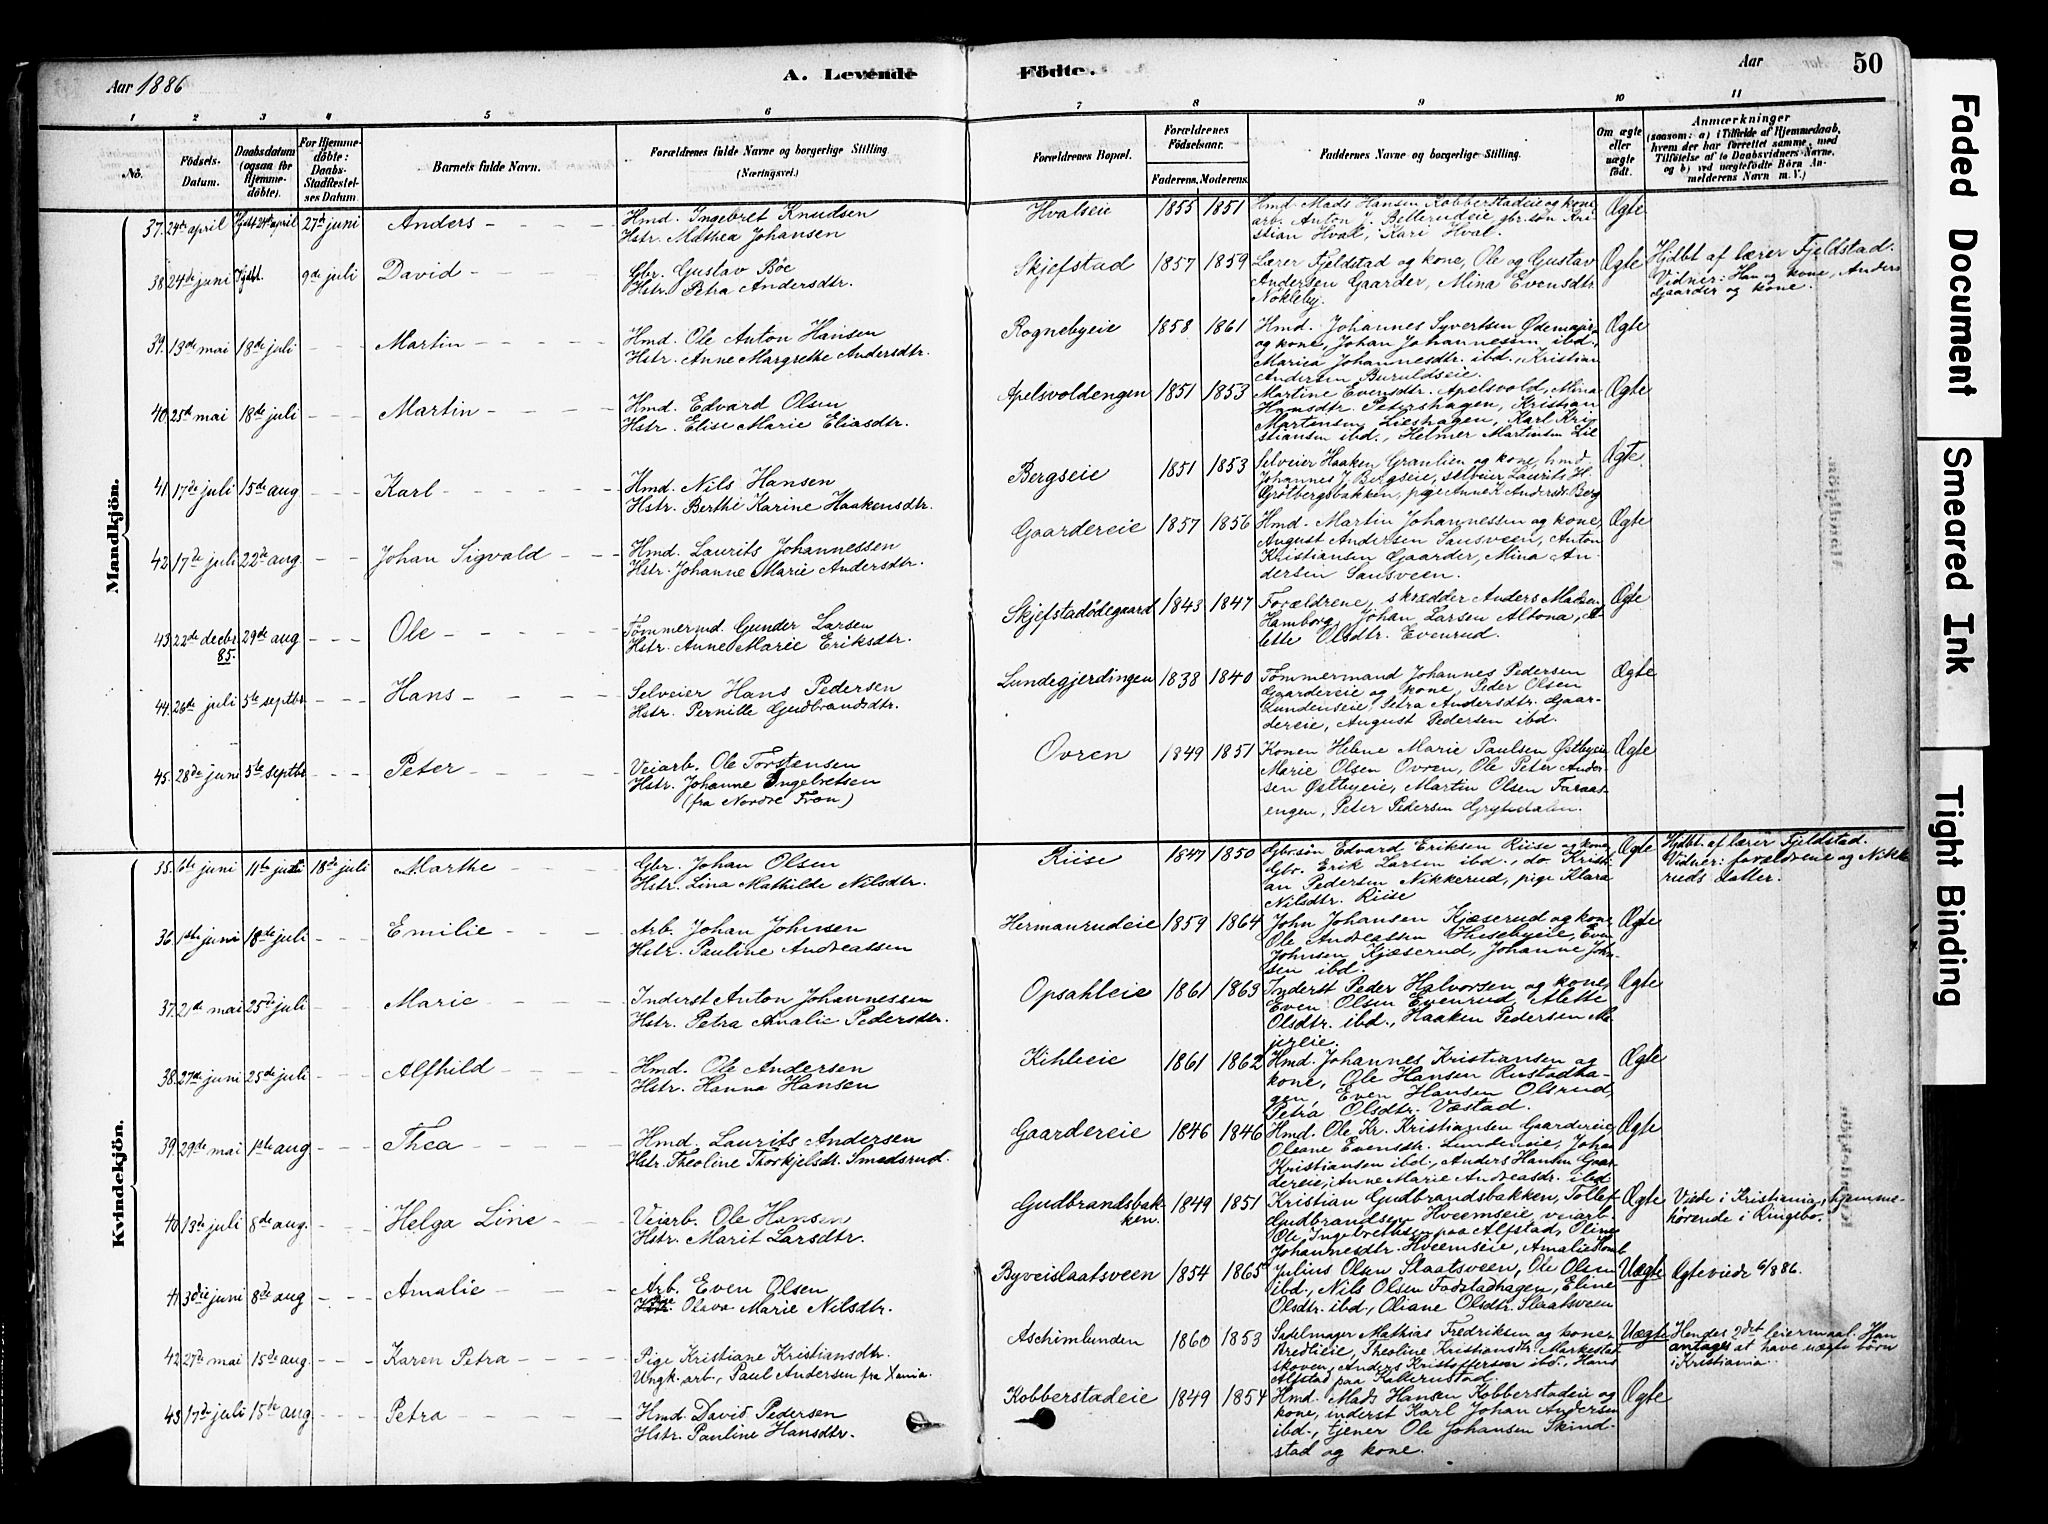 Aar 1886
A. Levende
Födte.
Aar
50
1 2 3 4 5 6 7 8 9 10 11
No.
Födsels-Datum.
Daabsdatum (ogsaa for Hjemmedöbte).
For Hjemmedöbte: Daabs-Stadfæstelses Datum.
Barnets fulde Navn.
Forældrenes fulde Navne og borgerlige Stilling (Næringsvei.)
Forældrenes Bopæl.
Forældrenes Födselsaar.
Faderens. Moderens.
Faddernes Navne og borgerlige Stilling.
Om ægte eller uægte födt.
Anmærkninger
(saasom: a) i Tilfælde af Hjemmedaab, hvem der har forrettet samme, med Tilföielse af to Daabsvidners Navne, og b) ved uægtefödte Börn Anmelderens Navn m. V.)
Mandkjön.
37. 24de april Hjdt 24de april 27de juni Anders
Hmd. Ingebret Knudsen
Hstr. Mathea Johansen
Hvalseie 1855 1851
Hmd. Mads Hansen Kobberstadeie og kone
arb. Anton J. Bellerudeie, gbr.søn Kri-
stian Hval, Kari Hval.
Ægte
38. 24de juni Hjdbt. 9de juli David
Gbr. Gustav Böe
Hstr. Petra Andersdtr.
Skjefstad 1857 1859
Lærer Fjeldstad og kone, Ole og Gustav
Andersen Gaarder, Mina Evensdtr.
Nökleby.
Ægte
Hjdbt af lærer Fjeldstad.
Vidner: Han og kone, Anders
Gaarder og kone.
39. 13de mai 18de juli Martin
Hmd. Ole Anton Hansen
Hstr. Anne Margrethe Andersdtr.
Rognebyeie 1858 1861
Hmd. Johannes Syvertsen Ødemark
og kone, Johan Johannessen ibd.,
Marica Johannesdtr. ibd., Kristian
Andersen Buruldseie.
Ægte
40. 25de mai 18de juli Martin
Hmd. Edvard Olsen
Hstr. Elise Marie Eliasdtr.
Apelsvoldengen 1851 1853
Martine Evensdtr. Apelsvold, Mina
Hansdtr. Petershagen, Kristian
Martensen Lieshagen, Karl Kri-
stiansen ibd., Helmer Martinsen Lie
Ægte
41. 17de juli 15de aug Karl
Hmd. Nils Hansen
Hstr. Berthe Karine Haakensdtr.
Bergseie 1851 1853
Selveier Haaken Granlien og kone, hmd.
Johannes J. Bergseie, selveier Laurits H.
Grötbergsbakken, pige Anne K. Andersdt. Berg
Ægte
42. 17de juli 22de aug. Johan Sigvald
Hmd. Laurits Johannessen
Hstr. Johanne Marie Andersdtr.
Gaardereie 1857 1856
Hmd. Martin Johannessen og kone,
August Andersen Sansveen, Anton
Kristiansen Gaarder, Mina An-
dersen Sansveen.
Ægte
43. 22de decbr 85. 29de aug Ole
Tömmermd. Gunder Larsen
Hstr. Anne Marie Eriksdtr.
Skjefstadödegaard 1843 1847
Forældrene, skrædder Anders Madsen
Hamborg, Johan Larsen Altona, A-
lette Olsdtr. Evenrud.
Ægte
44. 26de juli 5te septbr Hans
Selveier Hans Pedersen
Hstr. Pernille Gudbrandsdtr.
Lundegjerdingen 1838 1840
Tømmermand Johannes Pedersen
Gaardereie og kone, Peder Olsen
Lundenseie, Petra Andersdtr. Gaar-
dereie, August Pedersen ibd.
Ægte
45. 28de juni 5te septbr Peter
Veiarb. Ole Torstensen
Hstr. Johanne Engebretsen
(fra Nordre Fron)
Ovren 1849 1851
Konen Helene Marie Paulsen Østbyeie
Marie Olsen Ovren, Ole Peter Ander-
sen Østbyeie, Martin Olsen Faraas-
engen, Peter Pedersen Grytudalen.
Ægte
Kvindekjön.
35. 6te juni 11te juli 18de juli Marthe
Gbr. Johan Olsen
Hstr. Lina Mathilde Nilsdtr.
Riise 1847 1850
Gbr.søn Edvard Eriksen Riise og kone,
Gbr. Erik Larsen ibd., do. Kristi-
an Pedersen Nikkerud, pige Klara
Nilsdtr. Riise
Ægte
Hjdbt. af lærer Fjeldstad.
Vidner: forældrene og Nikke-
ruds datter.
36. 1ste juni 18de juli Emilie
Arb. Johan Johnsen
Hstr. Pauline Andreassen
Hermanrudeie 1859 1864
John Johansen Kjæserud og kone,
Ole Andreassen Husebyeie, Even
Johnsen Kjæserud, Johanne John-
sen ibd.
Ægte
37. 21de mai 25de juli Marie
Inderst Anton Johannessen
Hstr. Petra Amalie Pedersdtr.
Opsahleie 1861 1863
Inderst Peder Halvorsen og kone,
Even Olsen Evenrud, Alette
Olsdtr. ibd., Haaken Pedersen Me-
jereie.
Ægte
38. 27de juni 25de juli Alfhild
Hmd. Ole Andersen
Hstr. Hanna Hansen
Kihleie 1861 1862
Hmd. Johannes Kristiansen og
kone, Ole Hansen Rustadha-
gen, Even Hansen Olsrud,
Petra Olsdtr. Vestad.
Ægte
39. 29de mai 1ste aug Thea
Hmd. Laurits Andersen
Hstr. Theoline Thorkjelsdr. Smedsrud.
Gaardereie 1846 1846
Hmd. Ole Kr. Kristiansen Gaardereie,
Oliane Evensdtr. Lundeneie, Johan
Kristiansen ibd., Anders Hansen Gaar-
dereie, Anne Marie Andreasdr. ibd
Ægte
40. 13de juli 8de aug. Helga Line
Veiarb. Ole Hansen
Hstr. Marit Larsdtr.
Gudbrandsbak-
ken. 1849 1851
Kristian Gudbrandsbakken, Tollef
Gudbrandsen Hveemseie, veiarb.
Ole Ingebretsen paa Alfstad, Oline
Johannesdtr. Hveemseie, Amalie Homb
Ægte
Viede i Kristiania, hjemme-
hörende i Ringebo.
41. 30die juni 8de aug Amalie
Arb. Even Olsen
Olava Marie Nilsdtr.
Byveislaatsveen 1854 1865
Julius Olsen Slaatsveen, Ole Olsen
ibd., Nils Olsen Fodstadhagen, Eline
Olsdtr. ibd., Oliane Olsdtr. Slaatsveen
Uægte
Ægteviede 6/8 86.
42. 27de mai 15de aug. Karen Petra
Pige Kristiane Kristiansdtr.
Ungk. arb., Paul Andersen fra Xania.
Aschimlunden 1860 1853
Sadelmager Mathias Fredriksen og kone
Bredlieie, Theoline Kristiansdtr. Markestad
skoven, Anders Kristoffersen ibd., Hans
Alfstad paa Kallerustad.
Uægte
Hendes 2det leiermaal. Han
antages at have uægte børn
i Kristiania.
43. 17de juli 15de aug Petra
Hmd. David Pedersen
Hstr. Pauline Hansdtr.
Kobberstadeie 1849 1854
Hmd. Mads Hansen Kobberstadeie og
kone, inderst Karl Johan Andersen
ibd., tjener Ole Johansen Skind-
stad og kone.
Ægte
Faded Document
Smeared Ink
Tight Binding